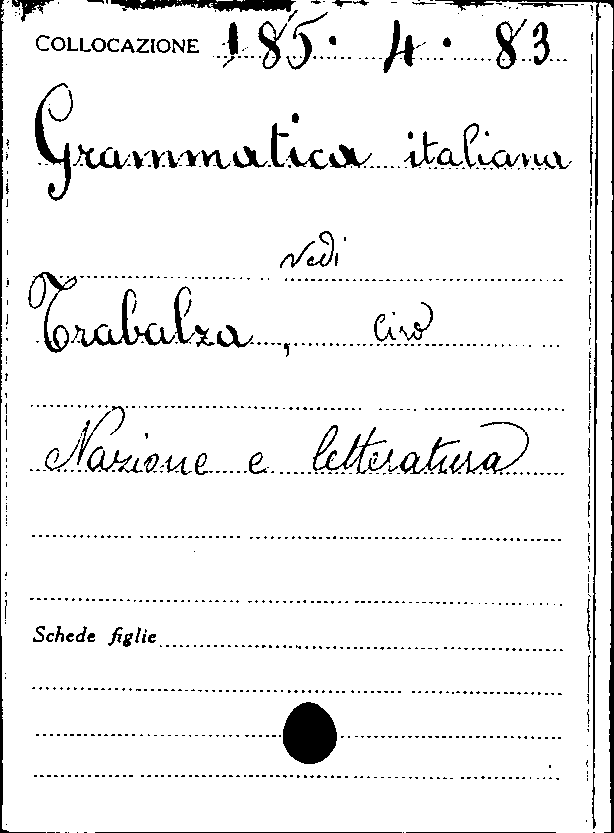 COLLOCAZIONE 185. 4. 83
Grammatica italiana
vedi
Trabalza, Ciro
Nazione e letteratura
Schede figlie